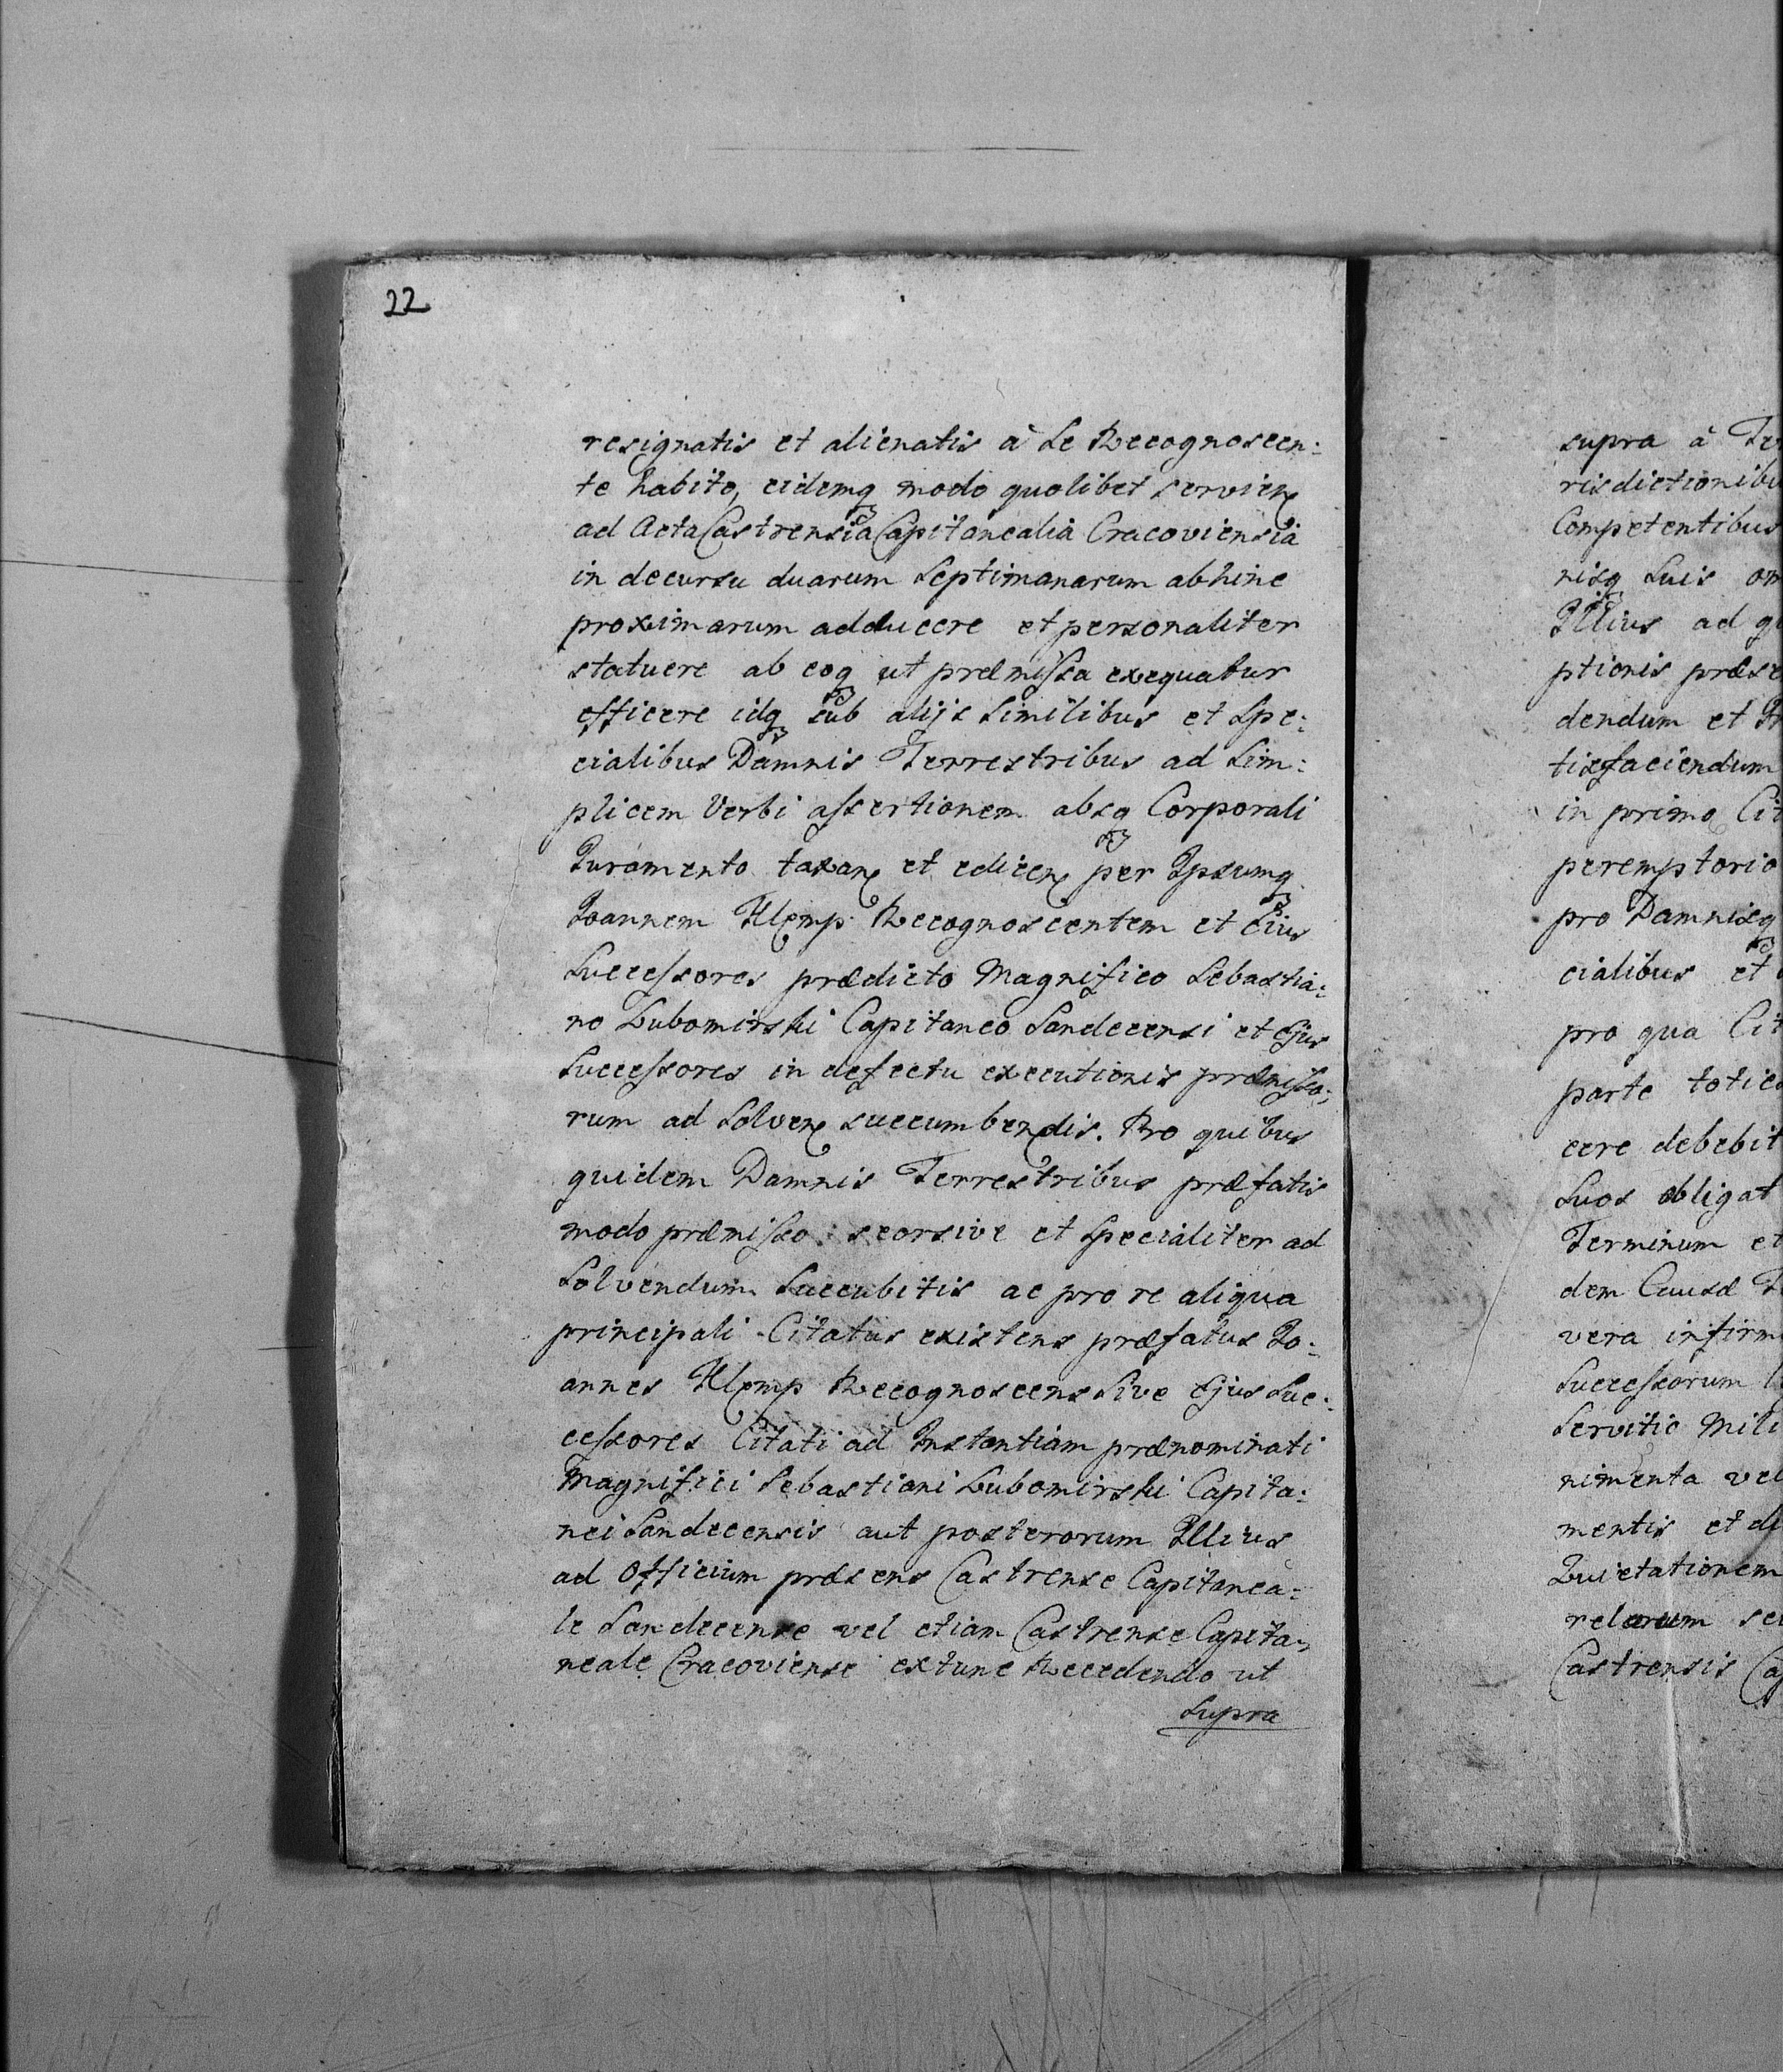 22
resignatis et alienatis à Se Recognoscen:
te habito, eidemq modo quolibet servien
ad Acta Castrensia Capitanealia Cracoviensia
in decursu duarum Septimanarum abhinc
proximarum adducere et personaliter
statuere ab eoq ut præmissa exequatur
efficere idq sub alijs Similibus et Spe:
cialibus Damnis Terrestribus ad Sim:
plicem Verbi assertionem absq Corporali
Juramento taxan et edicen per Ipsumq
Joannem Klemp Recognoscentem et Eius
Successores prædicto Magnifico Sebastia:
no Lubomirski Capitaneo Sandecensi et Ejus
Successores in defectu executionis præmisso:
rum ad Solven succumbendis. Pro quibus
quidem Damnis Terrestribus præfatis
modo præmisso seorsive et Specialiter ad
Solvendum Succubitis ac pro re aliqua
principali Citatus existens præfatus Jo:
annes Klemp Recognoscens Sive Ejus Suc:
cessores Citati ad Instantiam prænominati
Magnifici Sebastiani Lubomirski Capita:
nei Sandecensis aut posterorum Illius
ad Officium præsens Castrense Capitanea:
le Sandecense vel etiam Castrense Capita:
neale Cracoviense extunc Recedendo ut
Supra
supra à
risdictionibu
Competentibus
nisq Suis om
Illius ad q
ptionis præse
dendum et
tisfaciendum
in primo Cit
peremptorio
pro Damnisq
cialibus et
pro qua Cit
parte totie
cere debebit
Suos obligat
Terminum et
dem Causæ
vera infirm
Successorum
Servitio Mili
nimenta vel
mentis et di
Quietationem
relarum se
Castrensis Ca